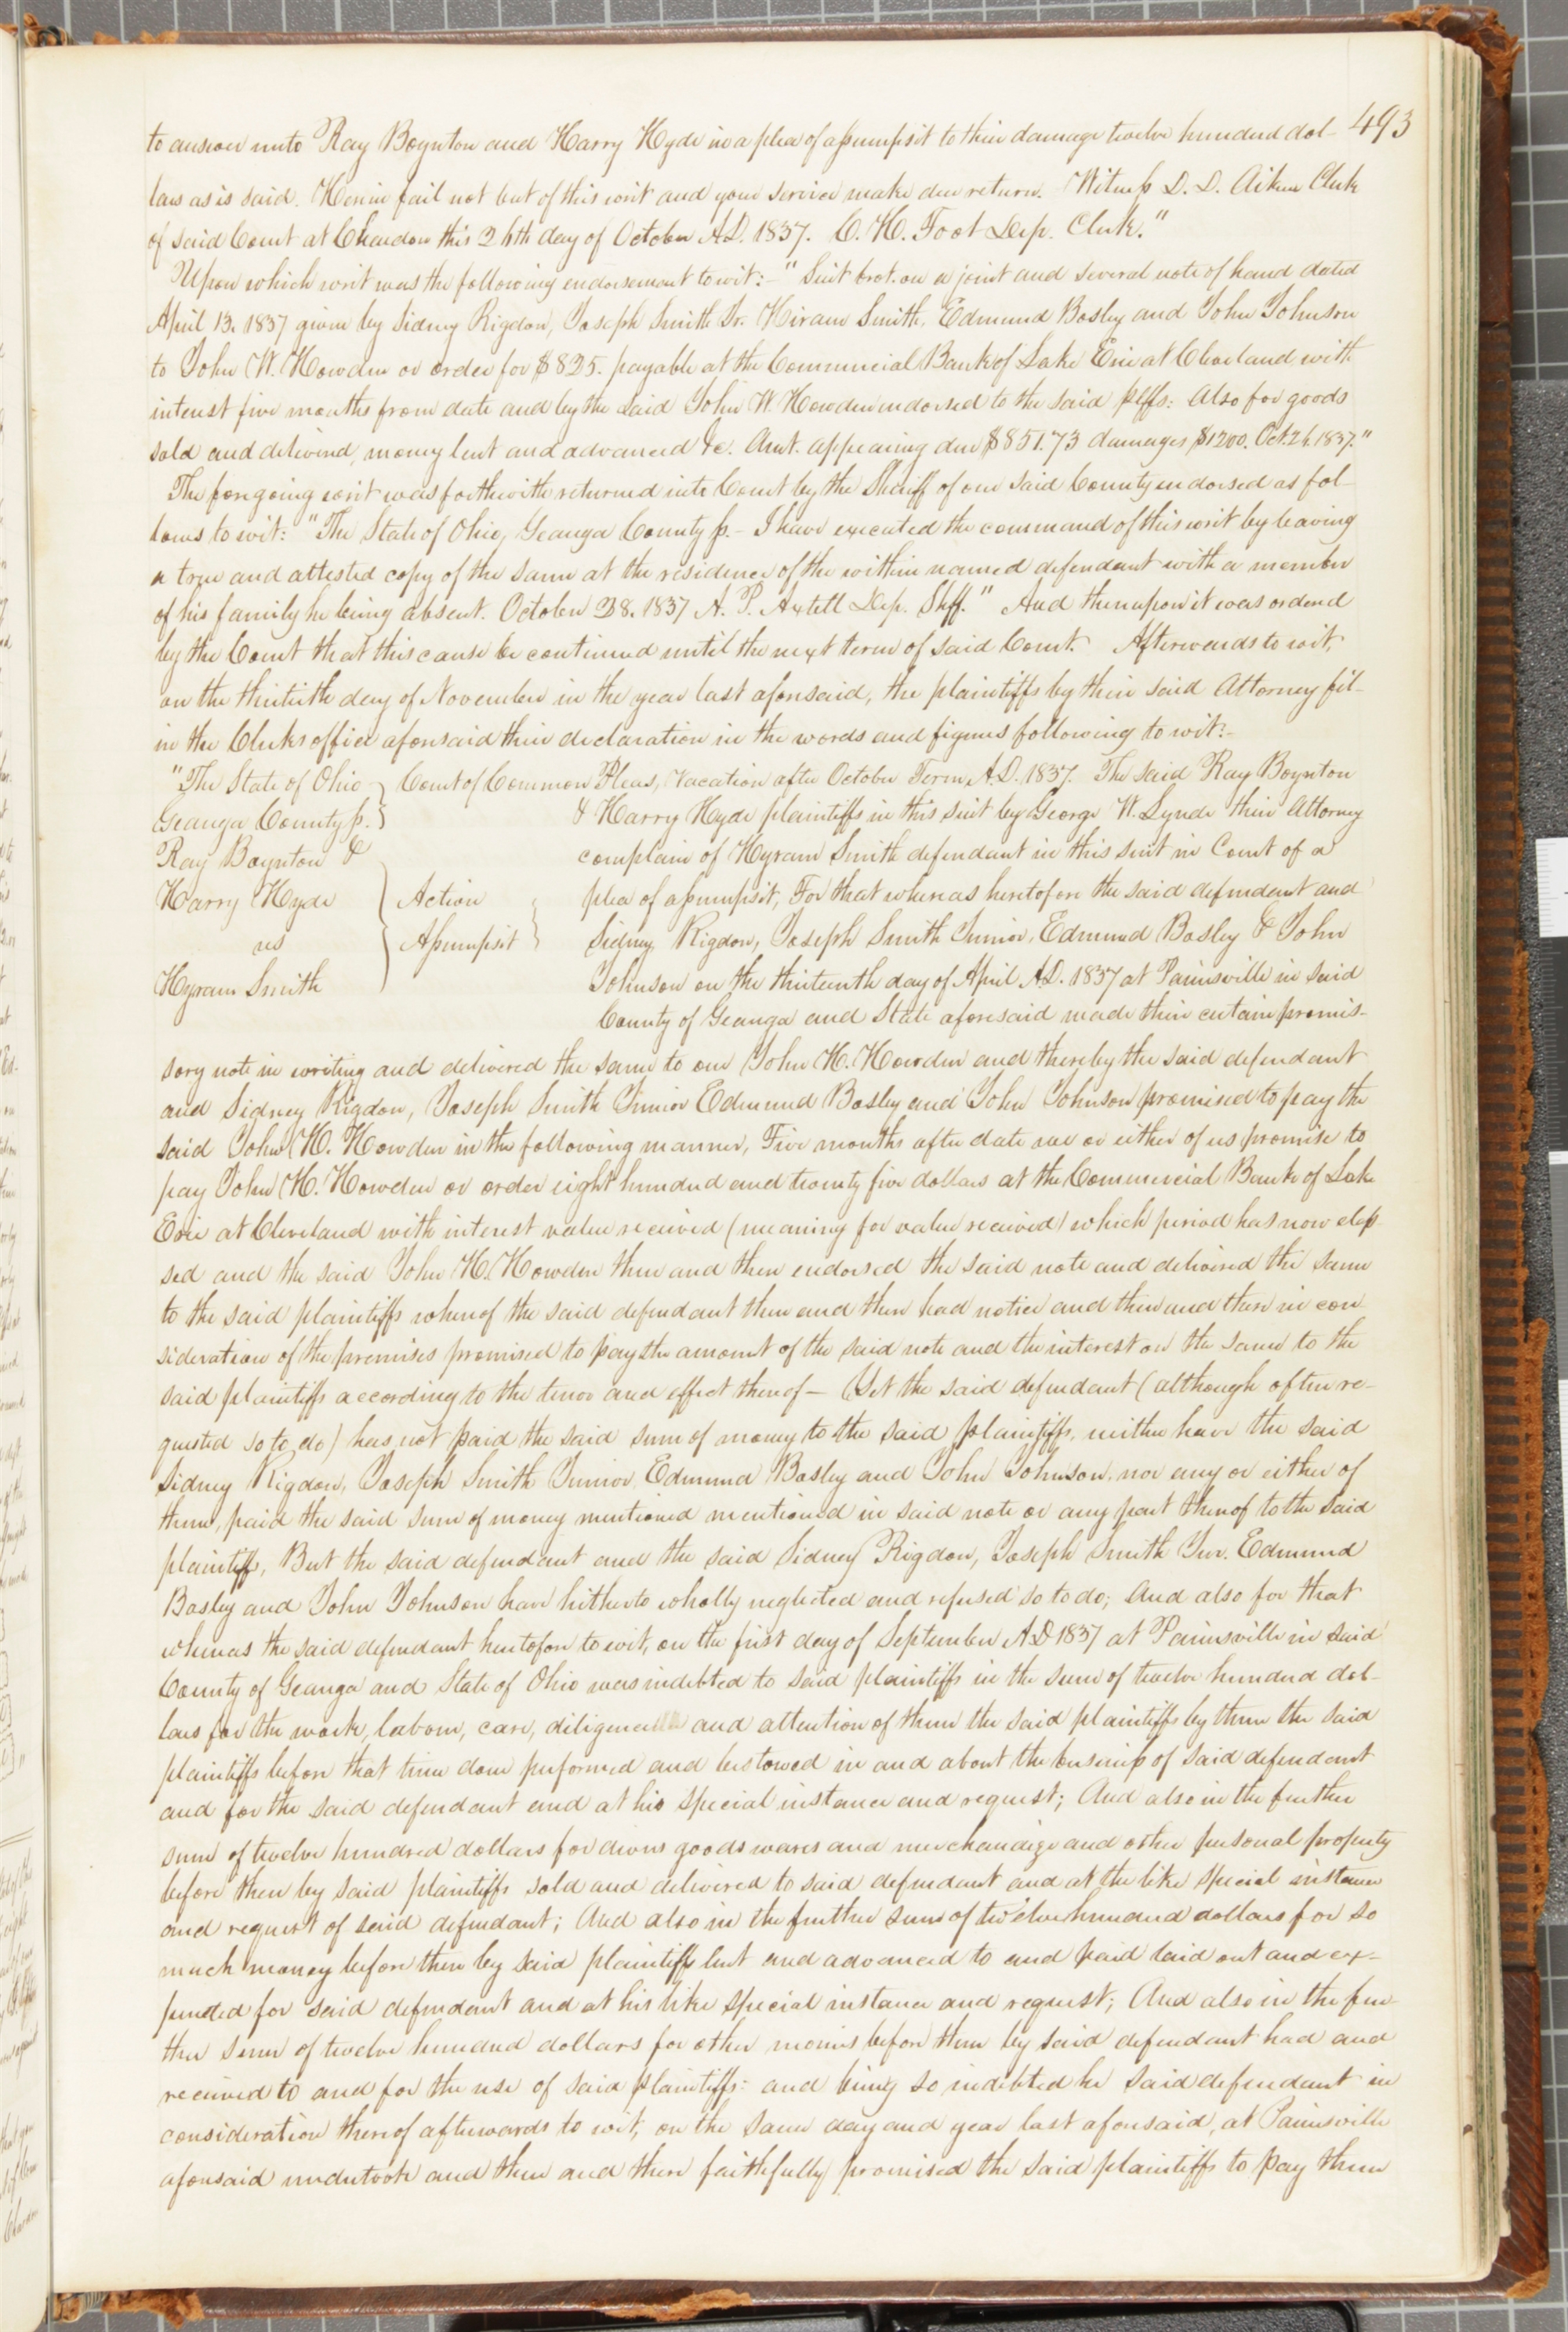 493
to answer unto Ray Boynton and Harry Hyde in a plea of assumpsit to their damage twelve hundred dol-
lars as is said. Herein fail not but of this writ and your service make due return. Witness D. D. Aiken Clerk
of said Court at Chardon this 24th day of October A.D. 1837. C. H. Foot Dep. Clerk."
Upon which writ was the following endorsement to wit:- "Suit brot. on a joint and several note of hand dated
April 13. 1837 given by Sidney Rigdon, Joseph Smith Jr. Hiram Smith, Edmund Bosley and John Johnson
to John W. Howden or order for $825. payable at the Commercial Bank of Lake Erie at Cleveland with
interest five months from date and by the said John W. Howden endorsed to the said plffs: Also for goods
sold and delivered, money lent and advanced &c. Amt. appearing due $851.73 damages $1200. Oct. 24. 1837."
The foregoing writ was forthwith returned into Court by the Sheriff of our said County endorsed as fol-
lows to wit: "The State of Ohio, Geauga County ss.- I have executed the command of this writ by leaving
a true and attested copy of the same at the residence of the within named defendant with a member
of his family he being absent. October 28. 1837 A. P. Axtell Dep. Shff." And thereupon it was ordered
by the Court that this cause be continued until the next term of said Court. Afterwards to wit,
on the thirtieth day of November in the year last aforesaid, the plaintiffs by their said Attorney fil-
in the Clerks office aforesaid their declaration in the words and figures following to wit:-
"The State of Ohio } Court of Common Pleas, Vacation after October Term A.D. 1837. The said Ray Boynton
Geauga County ss. } & Harry Hyde plaintiffs in this suit by George W. Lynde their Attorney
Ray Boynton & complain of Hyram Smith defendant in this suit in Court of a
Harry Hyde } Action } plea of assumpsit, For that whereas heretofore the said defendant and
vs } Assumpsit } Sidney Rigdon, Joseph Smith Junior, Edmund Bosley & John
Hyram Smith Johnson on the thirteenth day of April A.D. 1837 at Painesville in said
County of Geauga and State aforesaid made their certain promis-
sory note in writing and delivered the same to one John H. Howden and thereby the said defendant
and Sidney Rigdon, Joseph Smith Junior Edmund Bosley and John Johnson promised to pay the
said John H. Howden in the following manner, Five months after date we or either of us promise to
pay John H. Howden or order eight hundred and twenty five dollars at the Commercial Bank of Lake
Erie at Cleveland with interest value received (meaning for value received) which period has now elap-
sed and the said John H. Howden then and there endorsed the said note and delivered the same
to the said plaintiffs whereof the said defendant then and there had notice and then and there in con
sideration of the premises promised to pay the amount of the said note and the interest on the same to the
said plaintiffs according to the tenor and effect thereof- Yet the said defendant (although often re-
quested so to do) has not paid the said sum of money to the said plaintiffs, neither have the said
Sidney Rigdon, Joseph Smith Junior Edmund Bosley and John Johnson, nor any or either of
them, paid the said sum of money mentioned mentioned in said note or any part thereof to the said
plaintiffs, But the said defendant and the said Sidney Rigdon, Joseph Smith Jun. Edmund
Bosley and John Johnson have hitherto wholly neglected and refused so to do; And also for that
whereas the said defendant heretofore to wit, on the first day of September A.D 1837 at Painesville in said
County of Geauga and State of Ohio was indebted to said plaintiffs in the sum of twelve hundred dol-
lars for the work, labour, care, diligence and attention of them the said plaintiffs by them the said
plaintiffs before that time done performed and bestowed in and about the business of said defendant
and for the said defendant and at his special instance and request; And also in the further
sum of twelve hundred dollars for divers goods wares and merchandize and other personal property
before then by said plaintiffs sold and delivered to said defendant and at the like special instance
and request of said defendant; And also in the further sum of twelve hundred dollars for so
much money before then by said plaintiffs lent and advanced to and paid laid out and ex-
pended for said defendant and at his like special instance and request; And also in the fur-
ther sum of twelve hundred dollars for other monies before then by said defendant had and
received to and for the use of said plaintiffs: and being so indebted he said defendant in
consideration thereof afterwards to wit, on the same day and year last aforesaid, at Painesville
aforesaid undertook and then and there faithfully promised the said plaintiffs to pay them